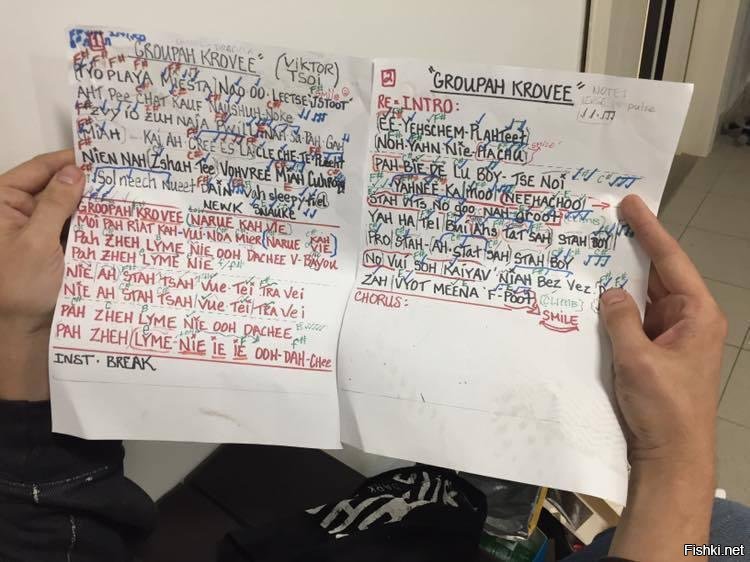 1
"GROUPAH KROVEE"
(VIKTOR TSOI)
F# F# F# F#
TYO PLAYA MESTA NOO OO. LEETSE
AHT PEE CHAT KALE NAHSHUH NOKE
ZVYIO ZUH NAJA
MNAH - KAI AH GREE ES LA CLE CHE
NIEN NAH ZShah Tee VOHVREE MIAH
/Sol neech nueet DAIN Vah sleepy
GROOPAH KROVEE (NARUE KAH VIE)
MOI PAH RIAT KAH-VUI-NDA MIER (NARUE KAH VIE)
PAH ZHEH LYME NIE OOH DACHEE V-BAYOU
PAH ZHEH LYME NIE
NIE AH STAH TSAH VUE-TEI TRA VEI
NIE AH STAH TSAH VUE TEI TRA VEI
PAH ZHEH LYME NIE OOH DACHEE
PAH ZHEH LYME-NIE IE IE OOH-DAH-CHEE
INST. BREAK
2
"GROUPAH KROVEE"
NOTE:
pulse
RE=INTRO:
EE YEHSCHEM-PLAHTEET
NOH-YAHN NIE-HACHU
SMILE
PAH-BIE DE LU BOY-TSE NOI
YAHNEE KAI MOO (NEEHACHOO)
STAH VITS NO GOO NAH GROOT
YAH HA TEI BUI AHS TAT SAH STAH BOY
PRO STAH-(AH STAT SAH STAH BOY
NO VUI SOH KAIYAV NIAH BEZ VEZ
ZAH VYOT MEENA F-POOT (CLIMB)
CHORUS:
SMILE
Fishki.net